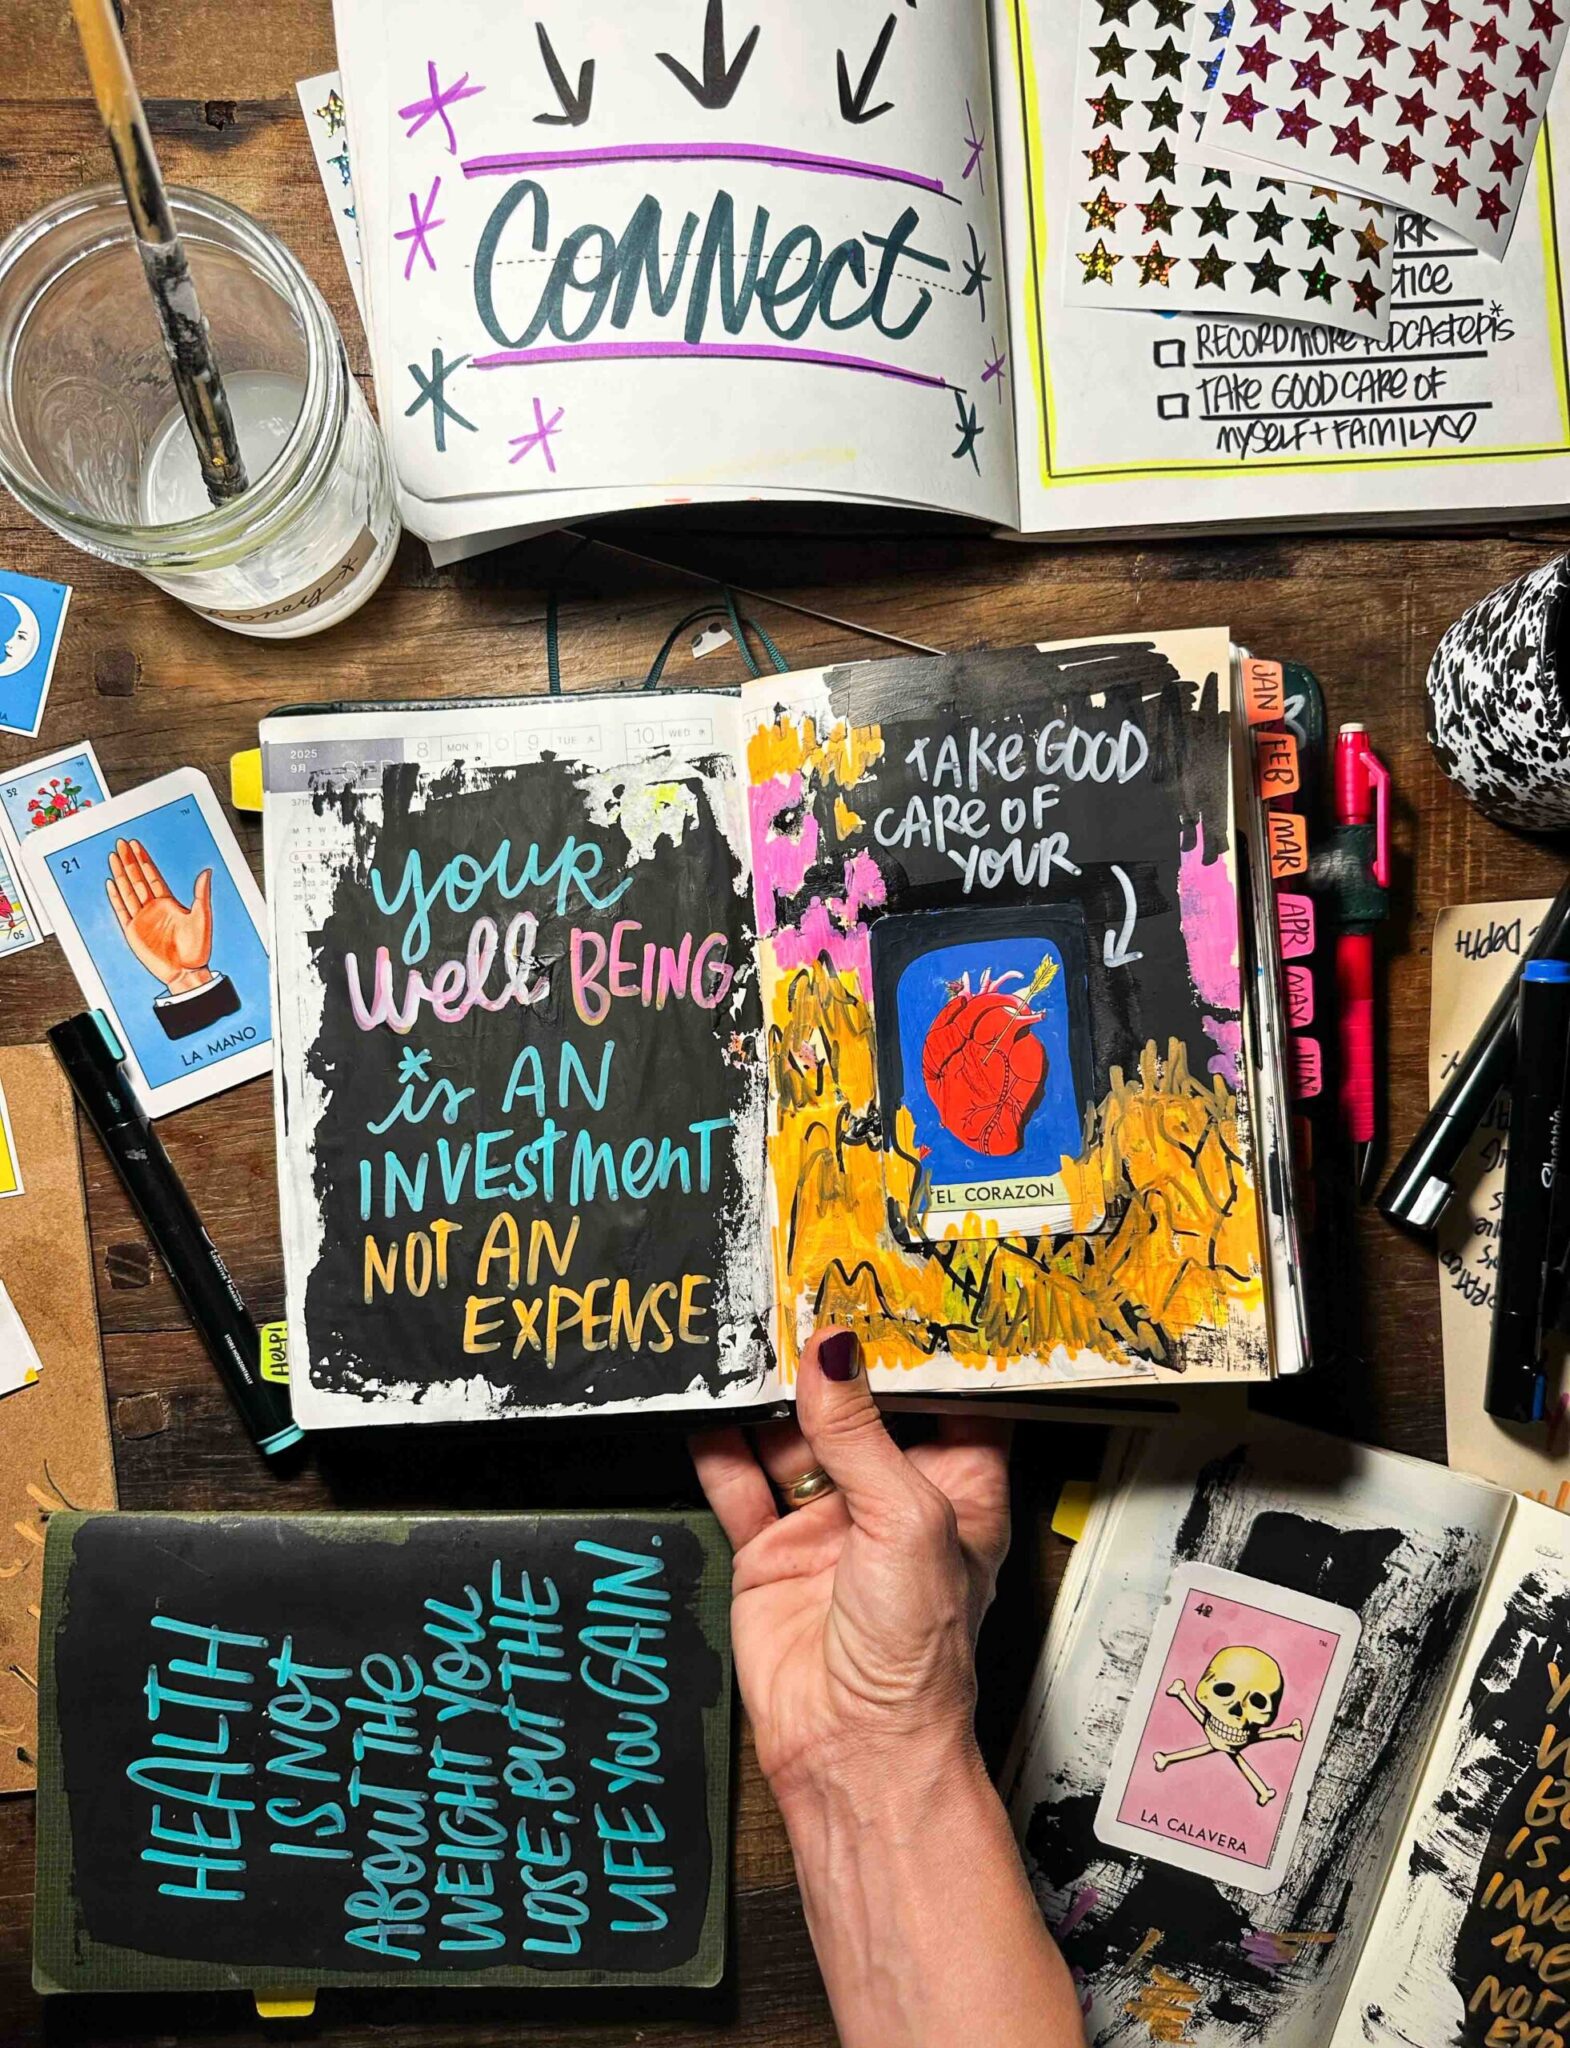 Connect
RK
TICE
RECORD MORE PODCAST EPIS*
TAKE GOOD CARE OF
MYSELF + FAMILY
2025
9月
SEP
8 MON 月
9 TUE 火
10 WED 水
37th
M T W T
1 2 3 4
11
YOUR
Well BEING
*is AN
INVESTMENT
NOT AN
EXPENSE
TAKE GOOD
CARE OF
YOUR
EL CORAZON
JAN
FEB
MAR
APR
MAY
JUN
21
LA MANO
52
50
HELP!
Sharpie
DEPTH
HEALTH
IS NOT
ABOUT THE
WEIGHT YOU
LOSE, BUT THE
LIFE YOU GAIN.
42
LA CALAVERA
IS
INVE
NOT